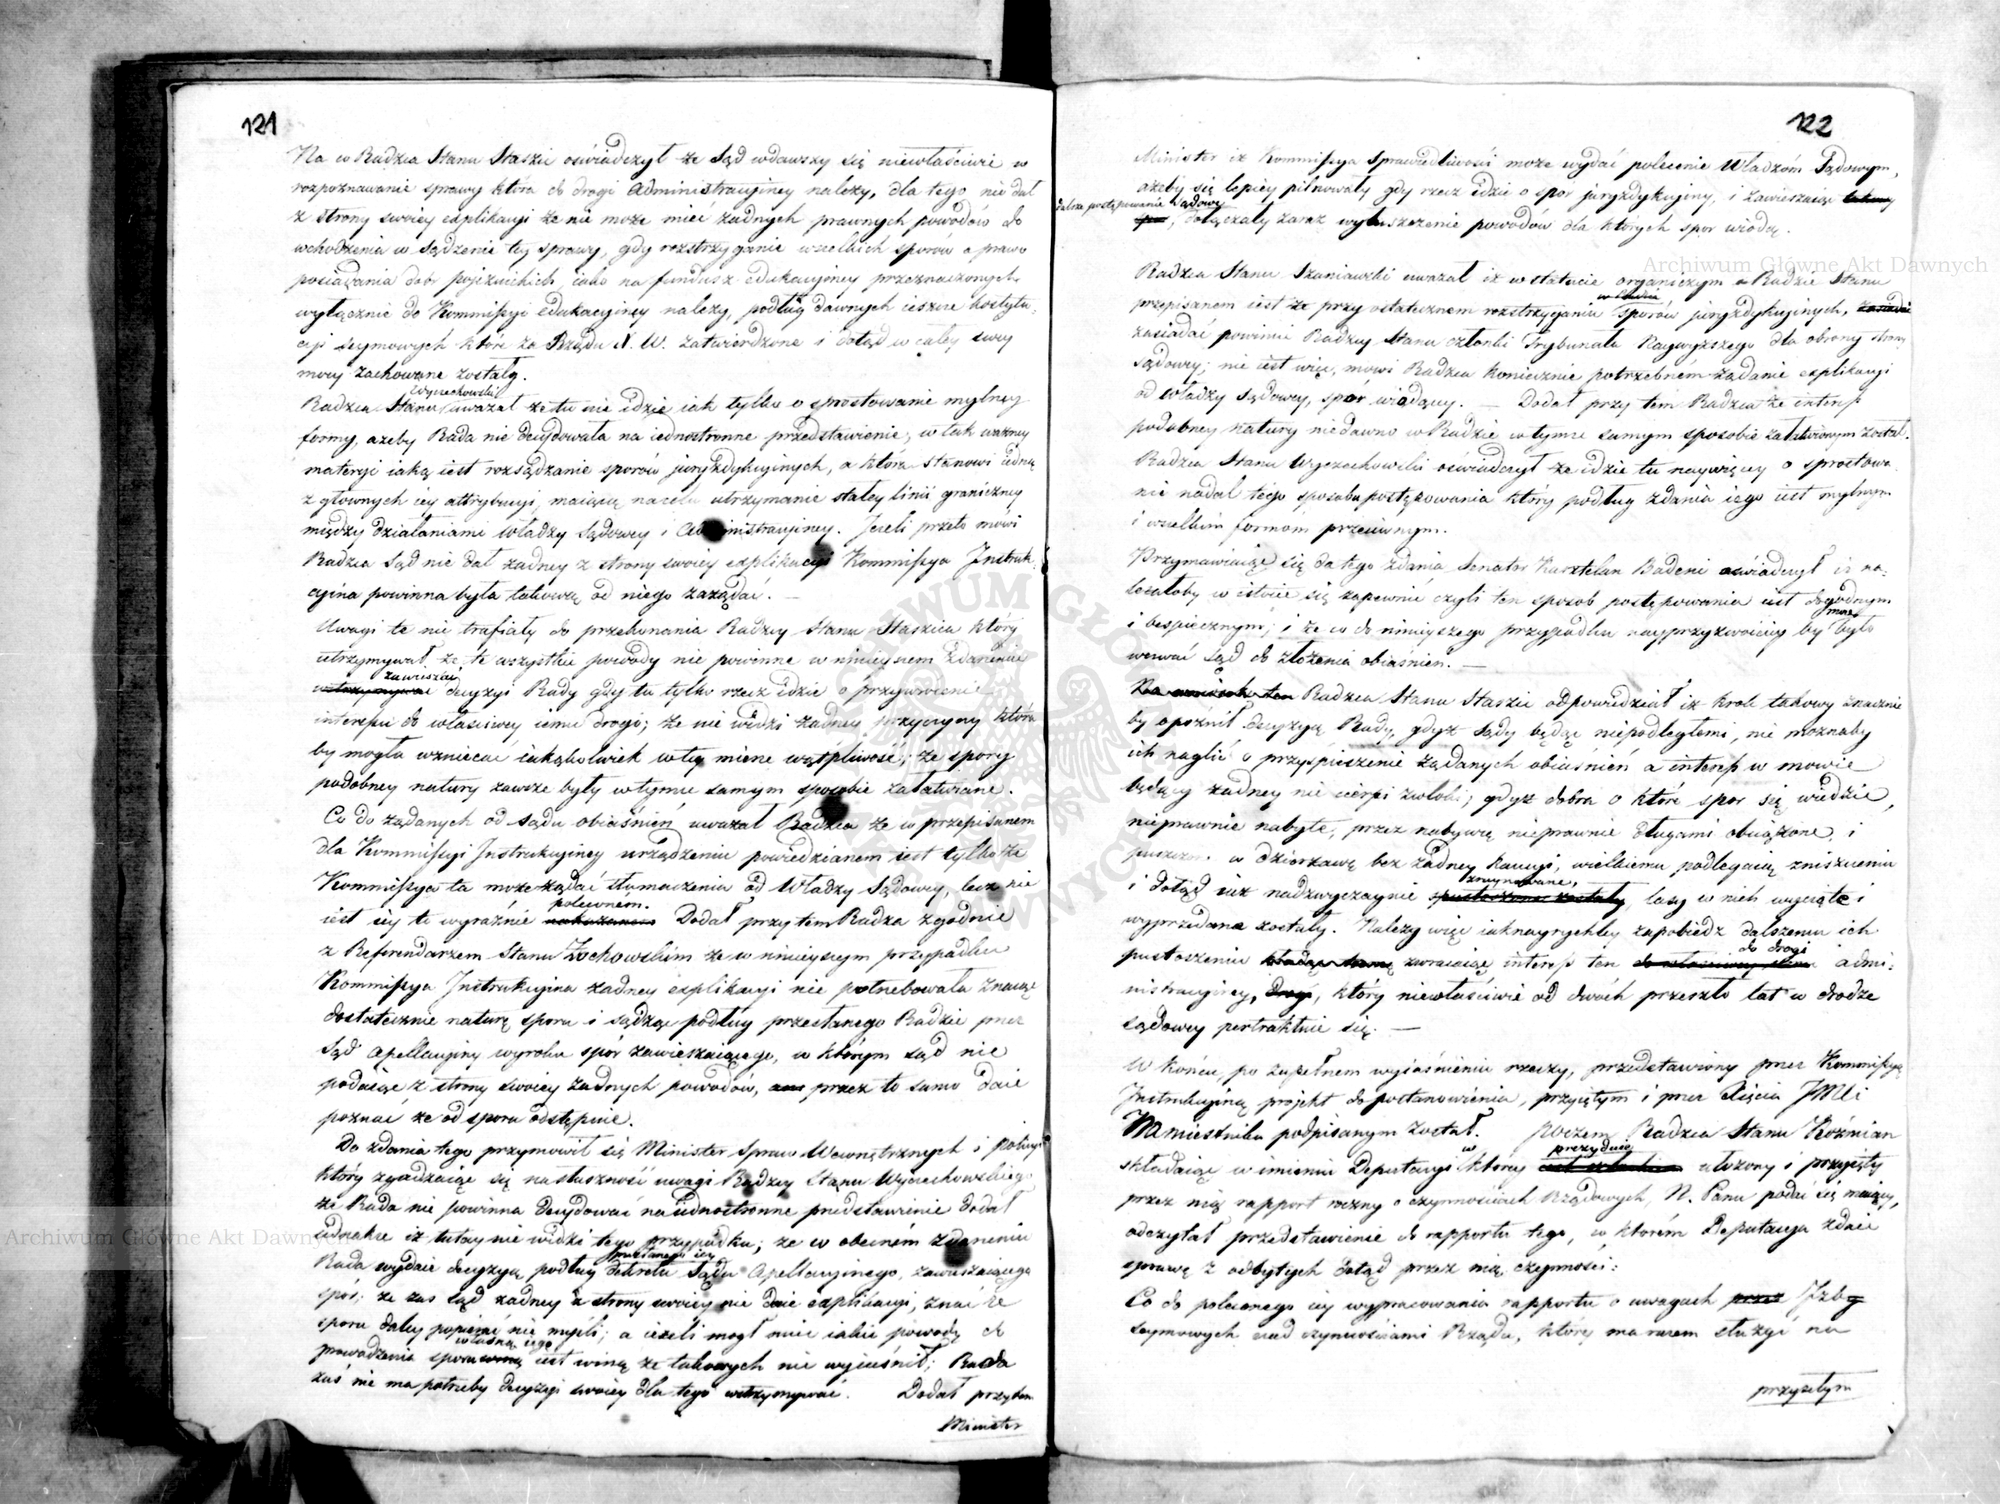 121
Na co Radzca Stanu Staszic oświadczył że Sąd wdawszy się niewłaściwie w
rozpoznawanie sprawy która do drogi Administracyiney należy, dla tego nie dał
z strony swoiey explikacyi że nie może mieć żadnych prawnych powodów do
wchodzenia w sądzenie tey sprawy, gdy rozstrzyganie wszelkich sporów o prawo
posiadania dóbr pojezuickich, iako na fundusz edukacyiney przeznaczonych
wyłącznie do Kommissyi Edukacyiney należy, podług dawnych ieszcze kostytu-
cyi seymowych które za Rządu N. W. zatwierdzone i dotąd w całey swey
mocy zachowane zostały.
Radzca Stanu Wyczechowski uważał że tu nie idzie iak tylko o sprostowanie mylney
formy, ażeby Rada nie decydowała na iednostronne przedstawienie, w tak ważney
materyi iaką iest rozsądzanie sporów juryzdykcyinych, a która stanowi iedną
z głownych iey attrybucyi, maiącą na celu utrzymanie stałey linii graniczney
między działaniami Władzy Sądowey i Administracyiney. Jeżeli przeto mówi
Radzca Sąd nie dał żadney z strony swoiey explikacyi Kommissya Instruk-
cyina powinna była takowey od niego zażądać. —
Uwagi te nie trafiały do przekonania Radzcy Stanu Staszica który
utrzymywał, że te wszystkie powody nie powinne w ninieyszem zdarzeniu
zawieszać
wstrzymywać decyzyi Rady gdy tu tylko rzecz idzie o przywrócenie
interessu do właściwey iemu drogi; że nie widzi żadney przyczyny która
by mogła wzniecać iakążkolwiek w tey mierze wątpliwość; że spory
podobney natury zawsze były w tymże samym sposobie załatwiane.
Co do żądanych od sądu obiaśnień uważał Radzca że w przepisanem
dla Kommissyi Instrukcyiney urządzeniu powiedzianem iest tylko że
Kommissya ta może żądać tłumaczenia od Władzy Sądowey, lecz nie
poleconem.
iest iey to wyraźnie nakazanem Dodał przytem Radzca zgodnie
z Referendarzem Stanu Żochowskim że w ninieyszym przypadku
Kommissya Instrukcyina żadney explikacyi nie potrzebowała znaiąc
dostatecznie naturę sporu i sądząc podług przesłanego Radzie przez
Sąd Apellacyiny wyroku spór zawieszaiącego, w którym sąd nie
podaiąc z strony swoiey żadnych powodów, przez to samo daie
poznać że od sporu odstępuie.
Do zdania tego przymowił się Minister Spraw Wewnętrznych i Policyi
który zgadzaiąc się na słuszność uwagi Radzcy Stanu Wyczechowskiego
że Rada nie powinna decydować na iednostronne przedstawienie dodał
iednakże iż tutay nie widzi tego przypadku; że w obecném zdarzeniu
przesłanego iey
Rada wydaie decyzyą podług dekretu Sądu Apellacyinego, zawieszaiącego
spór; że zaś sąd żadney z strony swoiey nie daie explikacyi, znać że
sporu daley popierać nie myśli; a ieżeli mogł mieć iakie powody do
własną iego
prowadzenia sporu winą iest winą że takowych nie wyiaśnił; Rada
zaś nie ma potrzeby decyzyi swoiey dla tego wstrzymywać. Dodał przytem
Minister
122
Minister iż Kommissya Sprawiedliwości może wydać polecenie Władzóm Sądowym,
ażeby się lepiey pilnowały gdy rzecz idzie o spór juryzdykcyiny, i zawieszaiąc takowy
dalsze postępowanie Sądowe
spor, dołączały zaraz wyłuszczenie powodów dla których spor wiodą.
Radzca Stanu Szaniawski uważał iż w statucie organicznym o Radzie Stanu
w Radzie
przepisanem iest że przy ostatecznem rozstrzyganiu sporów juryzdykcyinych, zasiadać
zasiadać powinni Radzcy Stanu członki Trybunału Naywyższego dla obrony strony
sądowey; nie iest więc, mówi Radzca koniecznie potrzebném żądanie explikacyi
od Władzy Sądowey, spór wiodącey. — Dodał przy tem Radzca że interess
podobney natury niedawno w Radzie w tymże samym sposobie załatwionym został.
Radzca Stanu Wyczechowski oświadczył że idzie tu naywięcey o sprostowa-
nie nadal tego sposobu postępowania który podług zdania iego iest mylnym
i wszelkim formom przeciwnym.
Przymawiaiąc się do tego zdania Senator Kasztelan Badeni oświadczył iż na-
leżałoby w istocie się zapewnić czyli ten sposob postępowania iest dogodnym
może
i bespiecznym; i że co do ninieyszego przypadku nayprzyzwoiciey by było
wezwać sąd do złożenia obiaśnień. —
Na wniosek ten Radzca Stanu Staszic odpowiedział iż krok takowy znacznie
by opóźnił decyzyą Rady, gdyż sądy będąc niepodległemi, nie możnaby
ich naglić o przyspieszenie żądanych obiaśnień a interess w mowie
będący żadney nie cierpi zwłoki; gdyż dobra o które spor się wiedzie,
nieprawnie nabyte, przez nabywcę nieprawnie długami obciążone, i
puszczone w dzierżawę bez żadney kaucyi, wielkiemu podlegaią zniszczeniu
zruynowane,
i dotąd iuż nadzwyczaynie spustoszone zostały, lasy w nich wycięte i
wyprzedane zostały. Należy więc iaknayrychley zapobiedz dalszemu ich
do drogi
pustoszeniu zwracaiąc interess ten do właściwey admi-
nistracyiney, drogi, który niewłaściwie od dwóch przeszło lat w drodze
sądowey pertraktuie się. —
W końcu po zupełnem wyiaśnieniu rzeczy, przedstawiony przez Kommissyą
Instrukcyiną projekt do postanowienia, przyiętym i przez Xięcia JMci
Namiestnika podpisanym został. Poczem Radzca Stanu Koźmian
w prezyduie
składaiąc w imieniu Deputacyi którey ułożony i przyięty
przez nią rapport roczny o czynnościach Rządowych, N. Panu podać się maiący,
odczytał przedstawienie do rapportu tego, w którém Deputacya zdaie
sprawę z odbytych dotąd przez nią czynności:
Co do poleconego iey wypracowania rapportu o uwagach przez Izby
seymowych nad czynnościami Rządu, które ma razem służyć na
przyszłym
Archiwum Główne Akt Dawnych
Archiwum Główne Akt Dawnych
ARCHIWUM GŁÓWNE AKT DAWNYCH